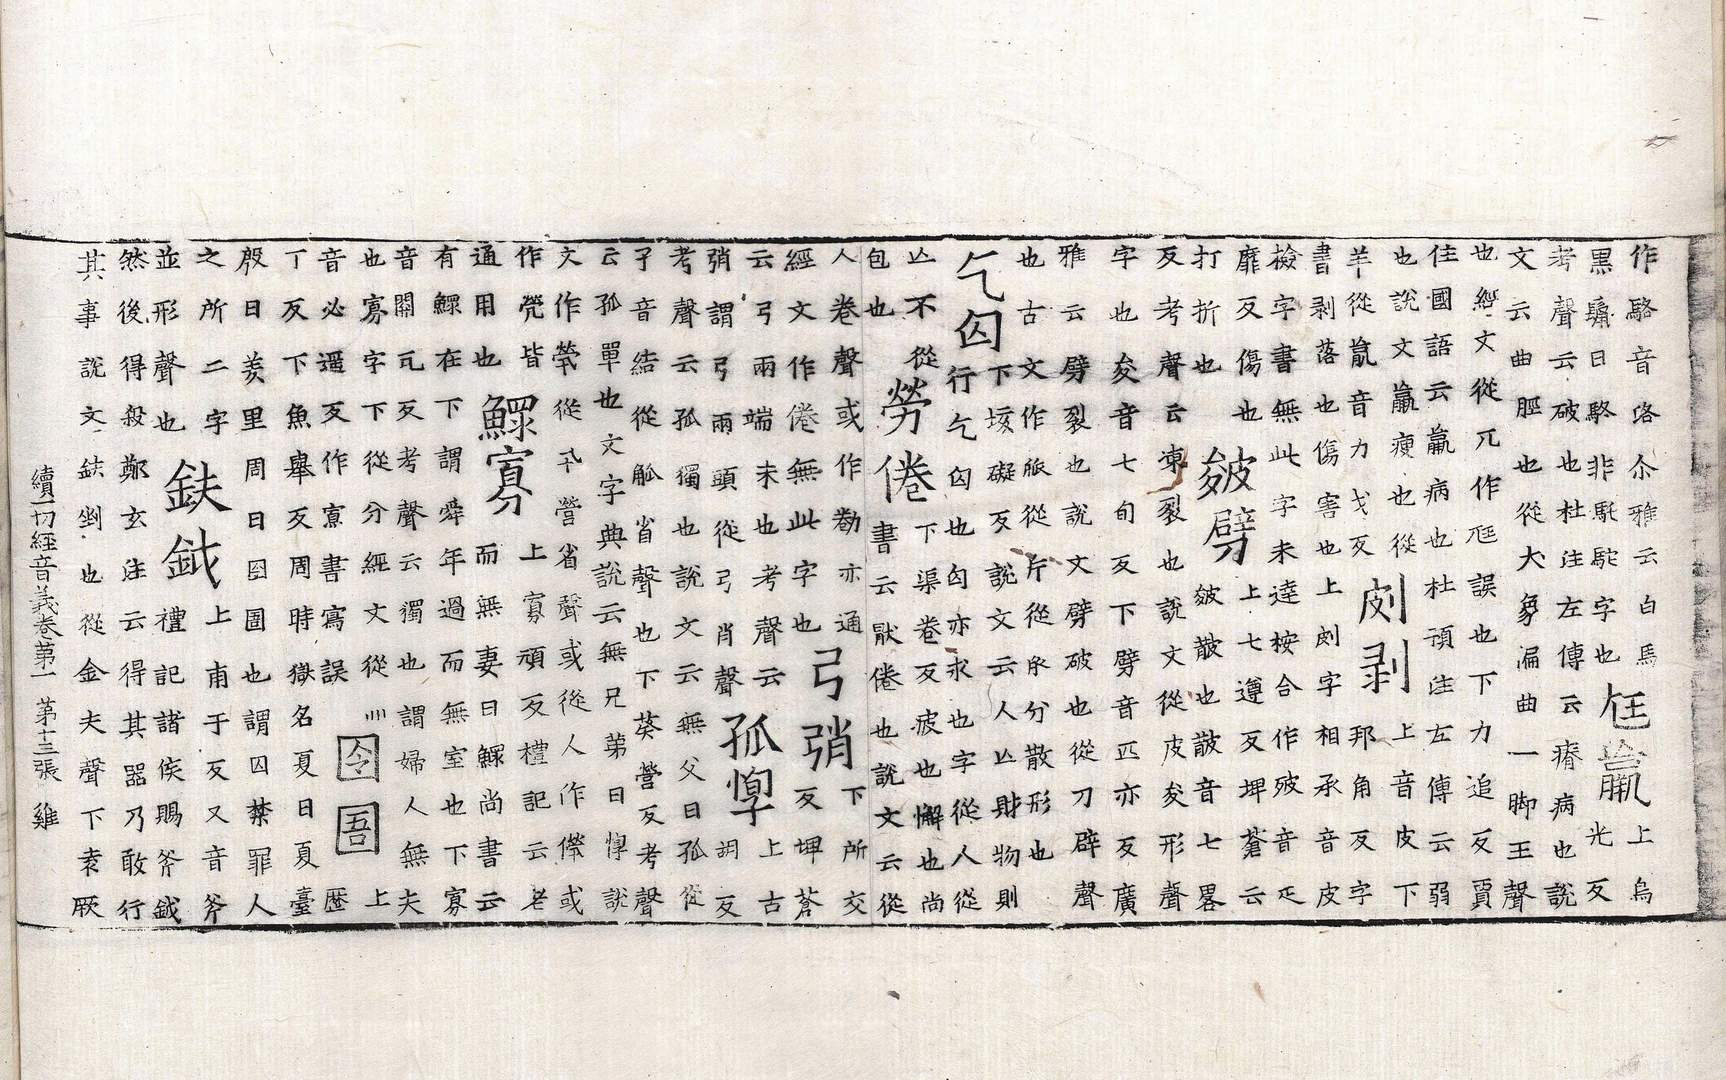 作駱音洛尒雅云白馬
黑鬛曰駱非駞駝字也
尪羸
上烏
光反
考聲云破也杜注左傳云瘠病也說
文云曲脛也從大象漏曲一脚王聲
也經文從兀作尩誤也下力追反賈
佳國語云羸病也杜預注左傳云弱
也說文羸瘦也從
羊從𦝠音力戈反
㓟剥
上音皮下
邦角反字
書剥落也傷害也上㓟字相承音皮
撿字書無此字未達桉合作破音疋
靡反傷也
打折也
皴劈
上七遵反埤蒼云
皴皵也皵音七畧
反考聲云凍裂也說文從皮夋形聲
字也夋音七旬反下劈音匹亦反廣
雅云劈裂也說文劈破也從刀辟聲
也古文作𠂢從斤從𠂢分散形也
乞匃
下垓礙反說文云人亾財物則
行乞匃也匃亦求也字從人從
亾不從
包也
勞倦
下渠卷反疲也懈也尚
書云猒倦也說文云從
人卷聲或作勌亦通
經文作倦無此字也
弓弰
下所交
反埤蒼
云弓兩端末也考聲云
弰謂弓兩頭從弓肖聲
孤惸
上古
胡反
考聲云孤獨也說文云無父曰孤從
子音結從觚省聲也下葵營反考聲
云孤單也文字典說云無兄弟曰惸說
文作煢從卂營省聲或從人作㒉或
作焭皆
通用也
鰥寡
上寡頑反禮記云老
而無妻曰鰥尚書云
有鰥在下謂舜年過而無室也下寡
音關瓦反考聲云獨也謂婦人無夫
也寡字下從分經文從灬
音必遥反作𡪍書寫誤
囹圄
上
歷
丁反下魚舉反周時獄名夏曰夏臺
殷曰羑里周曰囹圄也謂囚禁罪人
之所二字
並形聲也
鈇鉞
上甫于反又音斧
禮記諸侯賜斧鉞
然後得殺鄭玄注云得其器乃敢行
其事說文鈇剉也從金夫聲下袁厥
續一切經音義卷第一 第十三張 雞